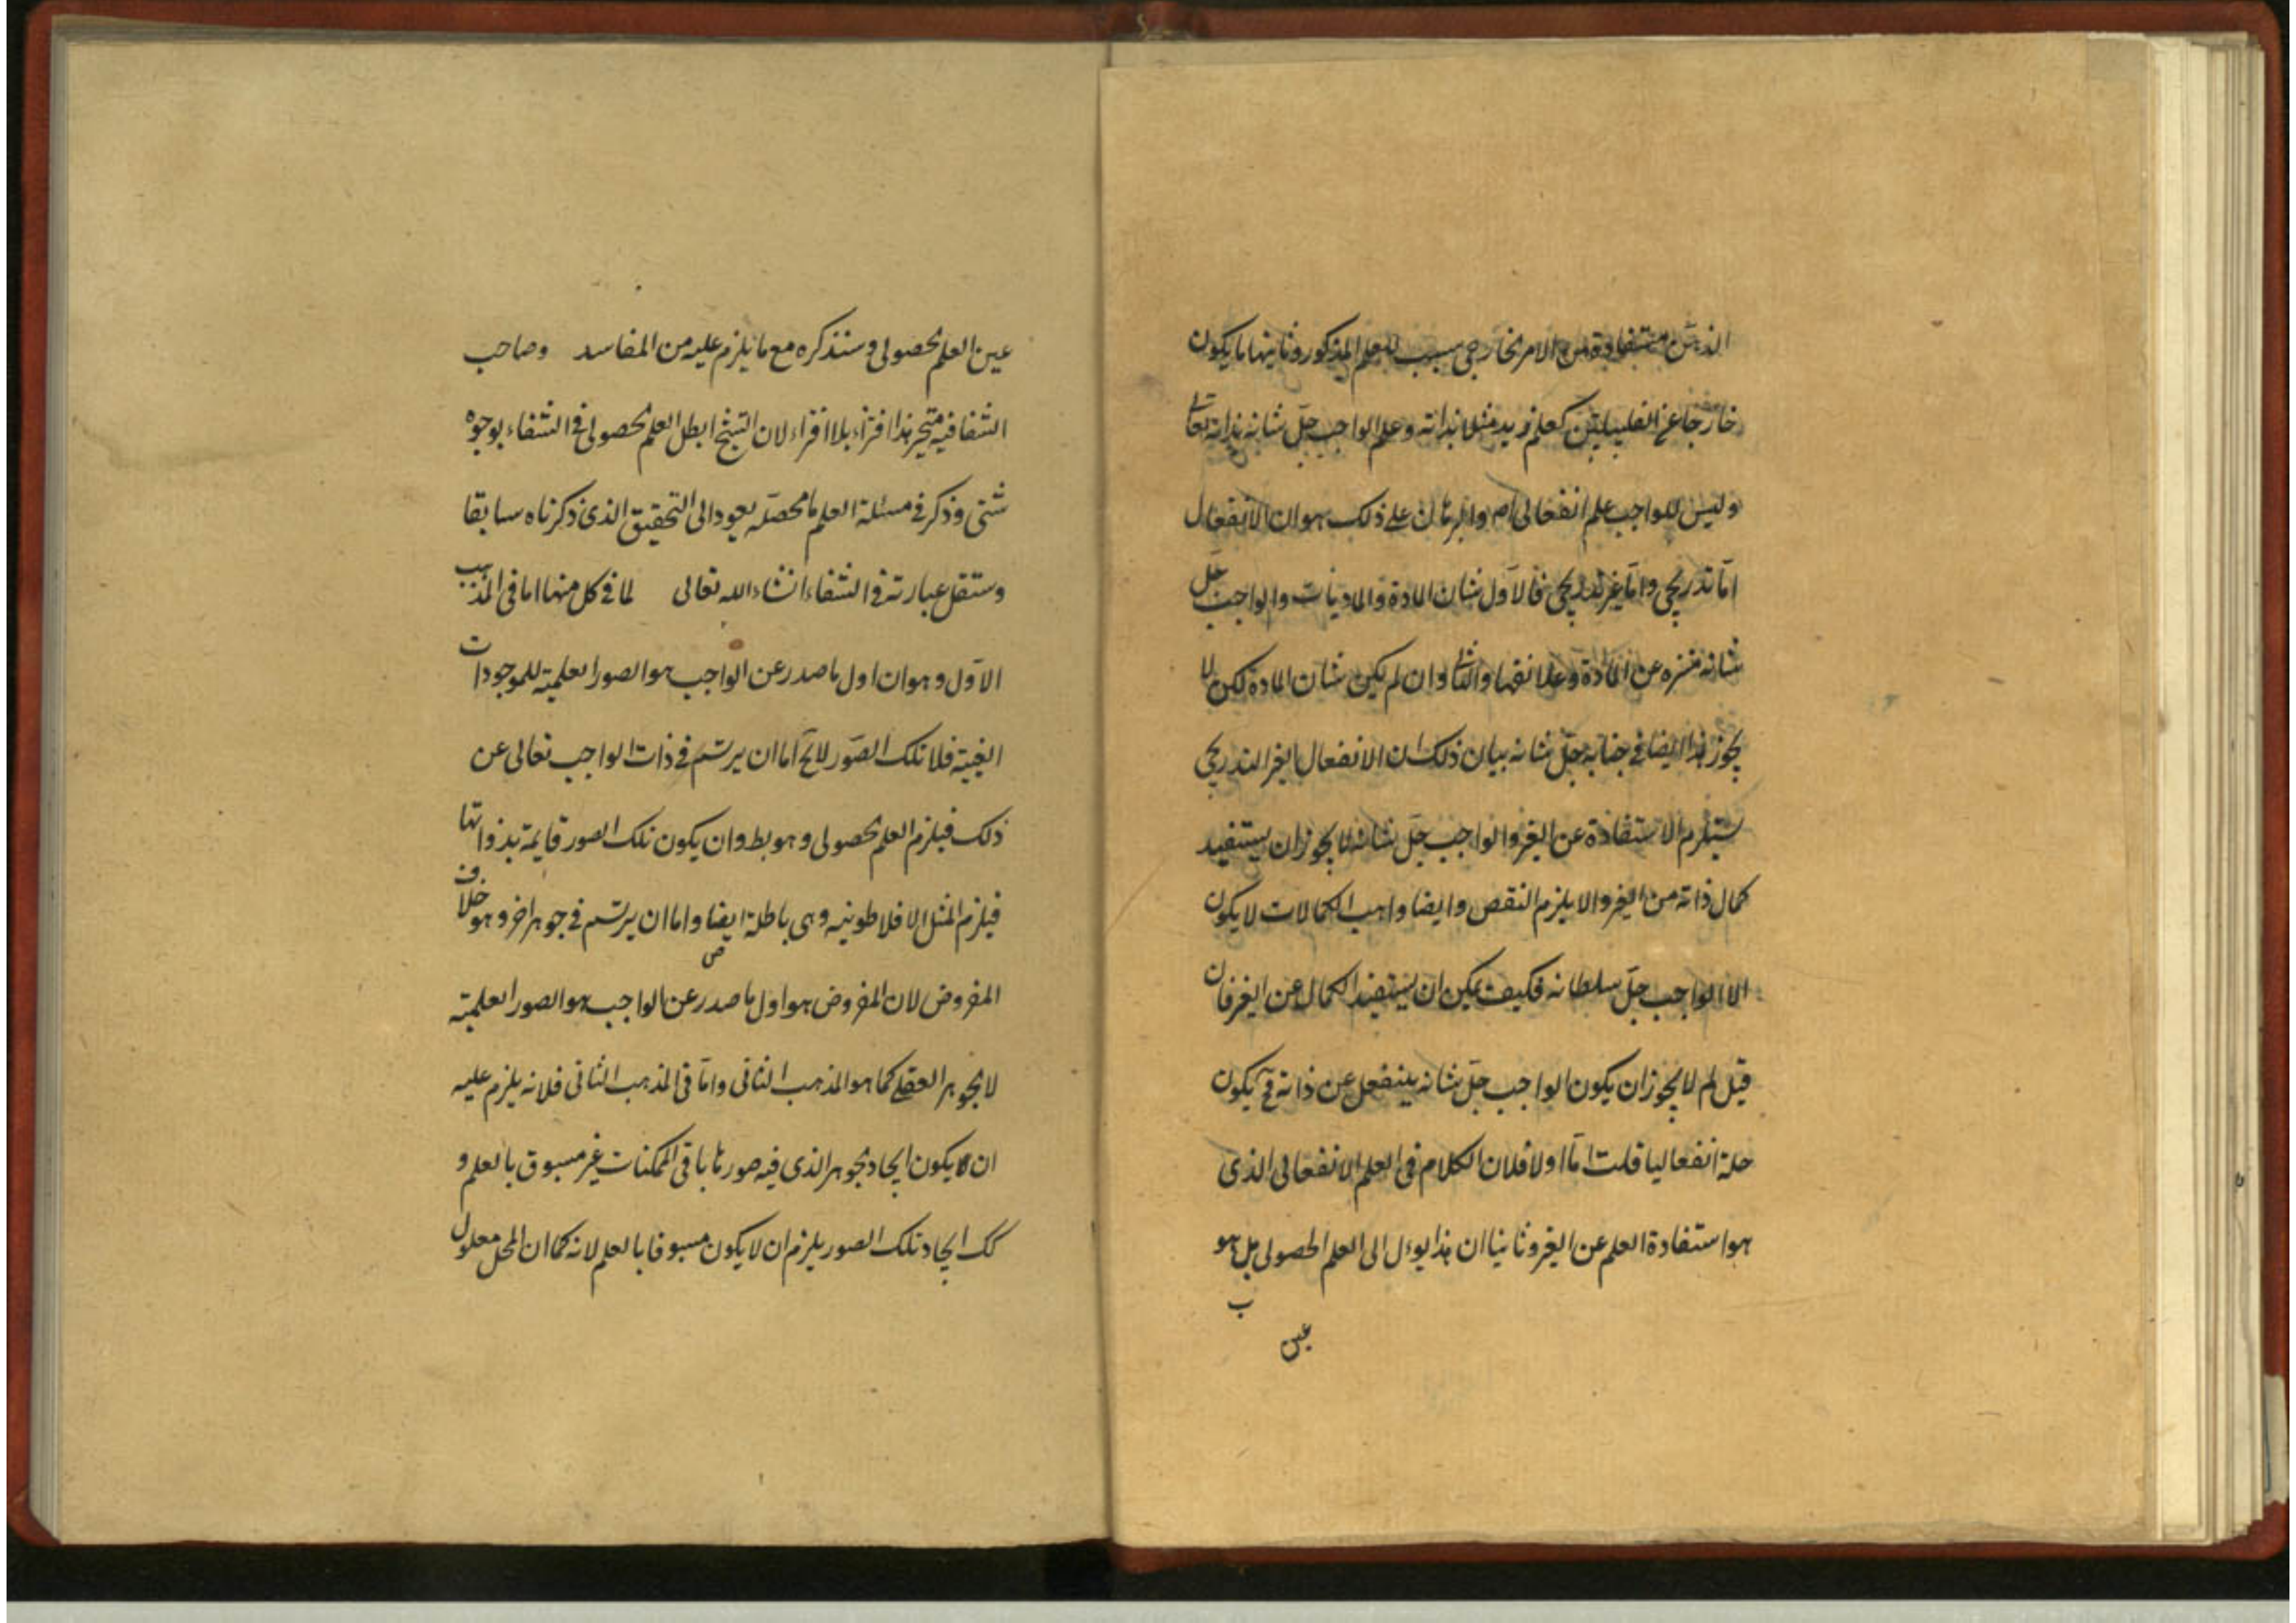 الذهن مستفادة من الامر الخارجی بسبب للعلم المذکور وثانیها ما یکون
خارجا عن القلیلیتین کعلم زید مثلا بذاته وعلم الواجب جلّ شانه بذاته تعالی
ولیس للواجب علم انفعالی اصم والبرهان علی ذلک هو ان الانفعال
امّا تدریجی وامّا غیر تدریجی فالاول شان المادة والمادیات والواجب جلّ
شانه منزه عن المادة وعلائقها والثانی وان لم یکن شان المادة لکن لا
یجوز هذا ایضا فی جنابه جلّ شانه بیان ذلک ان الانفعال الغیر التدریجی
یستلزم الاستفادة عن الغیر والواجب جلّ شانه لا یجوز ان یستفید
کمال ذاته من الغیر والا یلزم النقص وایضا واهب الکمالات لا یکون
الا الواجب جلّ سلطانه فکیف یمکن ان یستفید الکمال عن الغیر فان
قیل لم لا یجوز ان یکون الواجب جلّ شانه ینفعل عن ذاته فح یکون
علمه انفعالیا قلت امّا اولا فلان الکلام فی العلم الانفعالی الذی
هو استفادة العلم عن الغیر وثانیا ان هذا یوءل الی العلم الحصولی بل هو
ب
عین
عین العلم الحصولی وسنذکره مع ما یلزم علیه من المفاسد وصاحب
الشفا فیه متحیر هذا افتراء بلا افتراء لان الشیخ ابطل العلم الحصولی فی الشفاء بوجوه
شتی وذکر فی مسئلة العلم ما محصّله یعود الی التحقیق الذی ذکرناه سابقا
وستنقل عبارته فی الشفاء انشاء الله تعالی لما فی کل منها اما فی المذهب
الاوّل وهو ان اول ما صدر عن الواجب هو الصور العلمیة للموجودات
الغیبیة فلا تلک الصّور لا یخ اما ان یرتسم فی ذات الواجب تعالی عن
ذلک فیلزم العلم الحصولی وهو بط وان یکون تلک الصور قایمة بذواتها
فیلزم المثل الافلاطونیه وهی باطلة ایضا واما ان یرتسم فی جوهر اخر وهو خلاف
المفروض لان المفروض هو اول ما صدر عن الواجب هو الصور العلمیّة
لا الجوهر العقلی کما هو المذهب الثانی وامّا فی المذهب الثانی فلانه یلزم علیه
ان لا یکون ایجاد الجوهر الذی فیه صورتها باقی الممکنات غیر مسبوق بالعلم و
کک ایجاد تلک الصور یلزم ان لا یکون مسبوقا بالعلم لانه کما ان المحل معلول